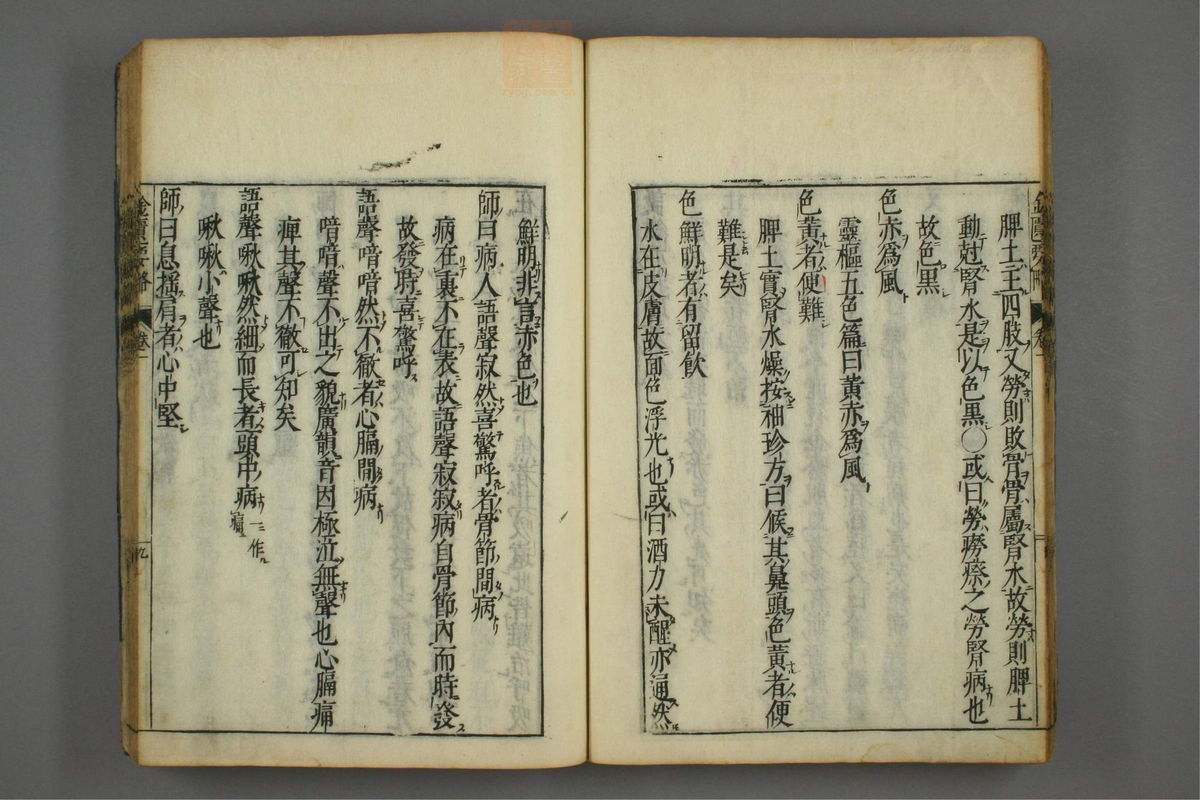 脾土主四肢又勞則敗骨骨屬腎水故勞則脾土
動尅腎水是以色黒〇或曰勞癆瘵之勞腎病也
故色黒
色赤爲風
靈樞五色篇曰黄赤爲風
色黄者便難
脾土實腎水燥按袖珍方曰候其鼻頭色黄者便
難是矣
色鮮明者有留飲
水在皮膚故面色浮光也或曰酒力未醒亦通然
鮮明非言赤色也
師曰病人語聲寂然喜驚呼者骨節間病
病在裏不在表故語聲寂寂病自骨節內而時發
故發時喜驚呼
語聲喑喑然不徹者心膈間病
喑喑聲不出之貌廣韻音因極泣無聲也心膈痛
痺其聲不徹可知矣
語聲啾啾然細而長者頭中病一作痛
啾啾小聲也
師曰息搖肩者心中堅
金匱要略 卷一 九